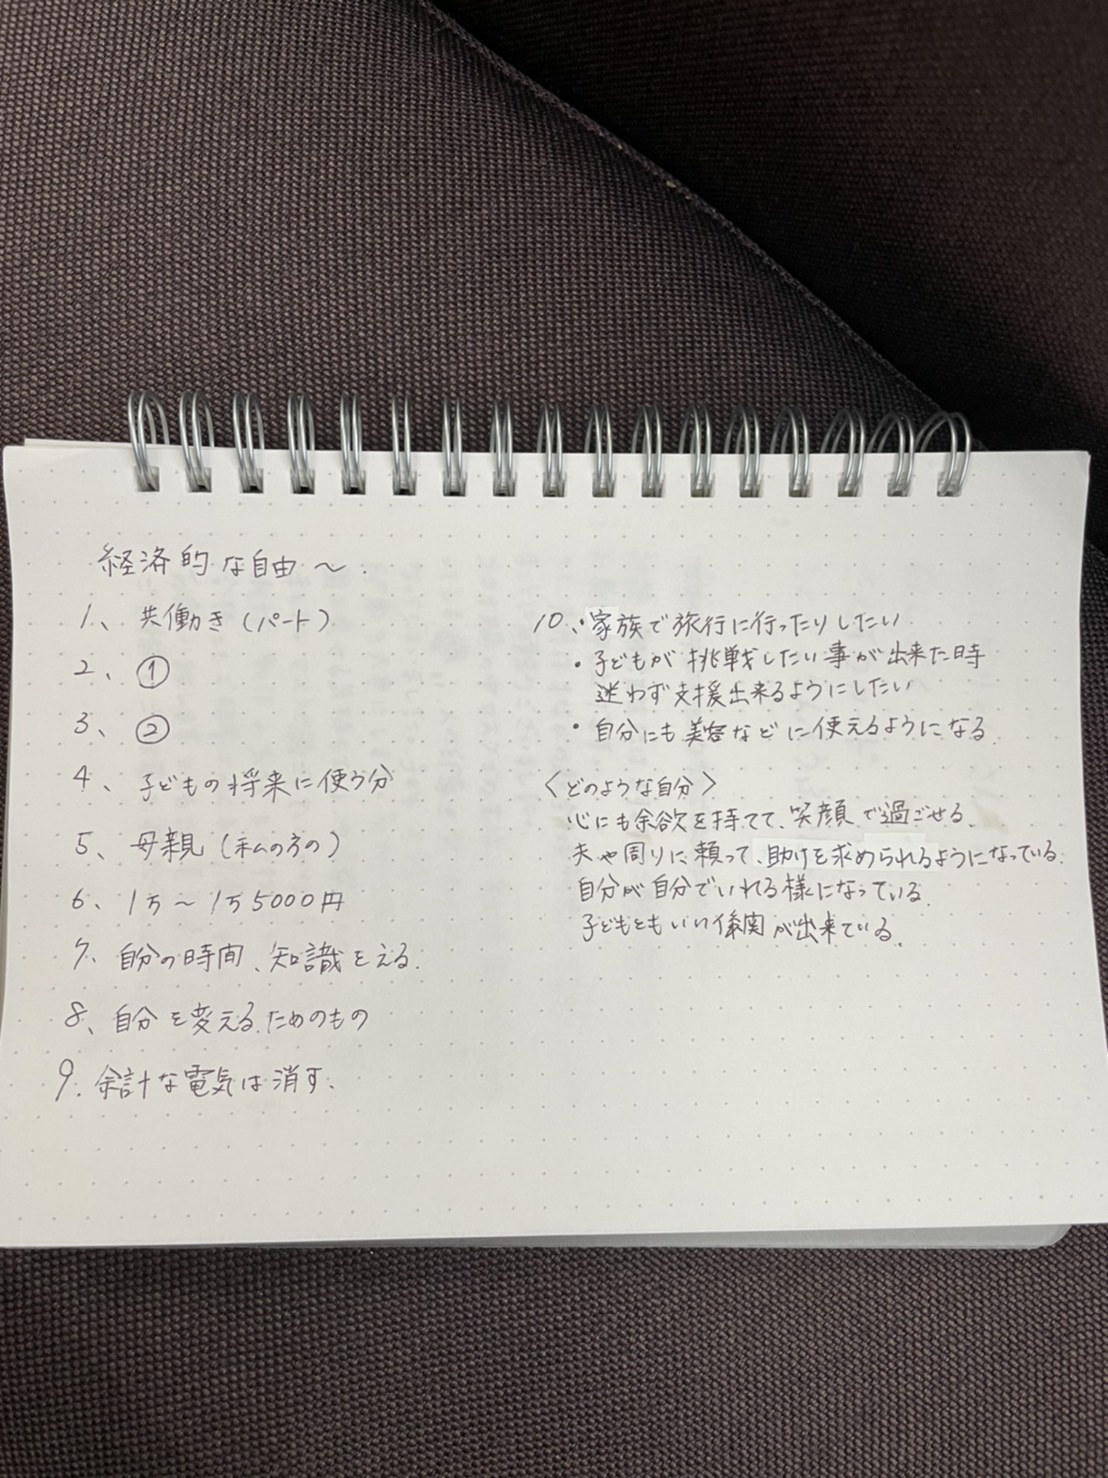 経済的な自由〜.
1、共働き(パート)
2、①
3、②
4、子どもの将来に使う分
5、母親(私の方の)
6、1万〜1万5000円
7、自分の時間、知識をえる.
8、自分を変える.ためのもの
9.余計な電気は消す.
10、・家族で旅行に行ったりしたい
・子どもが挑戦したい事が出来た時
迷わず支援出来るようにしたい
・自分にも美容などに使えるようになる.
〈どのような自分〉
心にも余欲を持てて、笑顔で過ごせる.
夫や周りに頼って、助けを求められるようになっている.
自分が自分でいれる様になっている.
子どもともいい係関が出来ている.